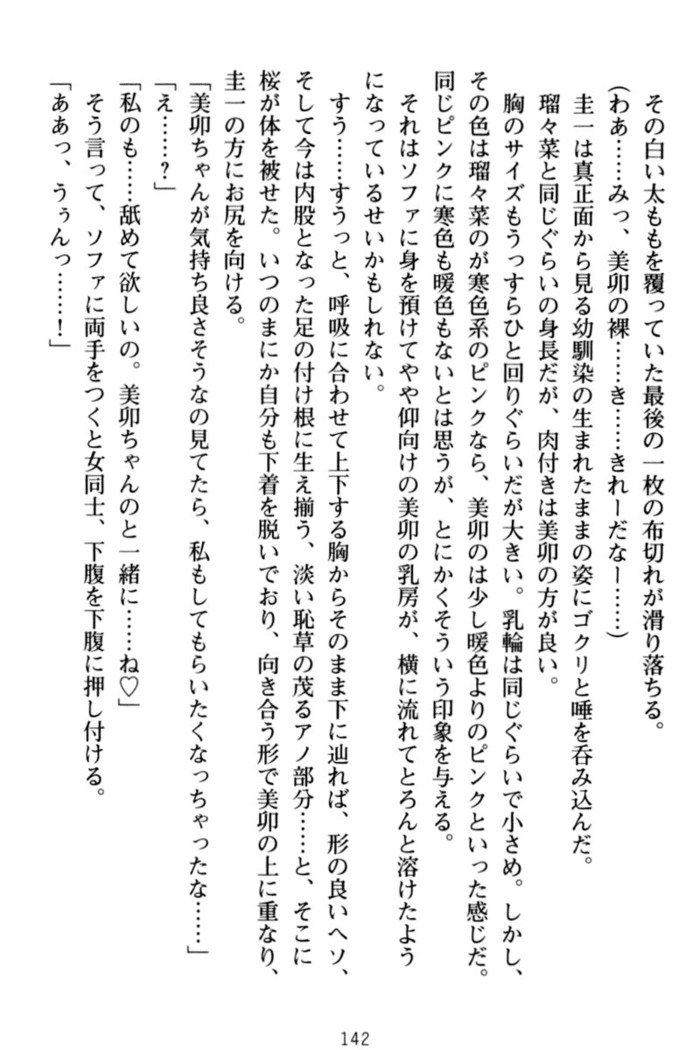 その白い太ももを覆っていた最後の一枚の布切れが滑り落ちる。
(わぁ……みっ、美卯の裸……き……きれーだなー……)
圭一は真正面から見る幼馴染の生まれたままの姿にゴクリと唾を呑み込んだ。
瑠々菜と同じぐらいの身長だが、肉付きは美卯の方が良い。
胸のサイズもうっすらひと回りぐらいだが大きい。乳輪は同じぐらいで小さめ。しかし、
その色は瑠々菜のが寒色系のピンクなら、美卯のは少し暖色よりのピンクといった感じだ。
同じピンクに寒色も暖色もないとは思うが、とにかくそういう印象を与える。
それはソファに身を預けてやや仰向けの美卯の乳房が、横に流れてとろんと溶けたよう
になっているせいかもしれない。
すう……すうっと、呼吸に合わせて上下する胸からそのまま下に辿れば、形の良いヘソ、
そして今は内股となった足の付け根に生え揃う、淡い恥草の茂るアノ部分……と、そこに
桜が体を被せた。いつのまにか自分も下着を脱いでおり、向き合う形で美卯の上に重なり、
圭一の方にお尻を向ける。
「美卯ちゃんが気持ち良さそうなの見てたら、私もしてもらいたくなっちゃったな……」
「え……？」
「私のも……舐めて欲しいの。美卯ちゃんのと一緒に……ね♡」
そう言って、ソファに両手をつくと女同士、下腹を下腹に押し付ける。
「ああっ、うぅんっ……！」
142